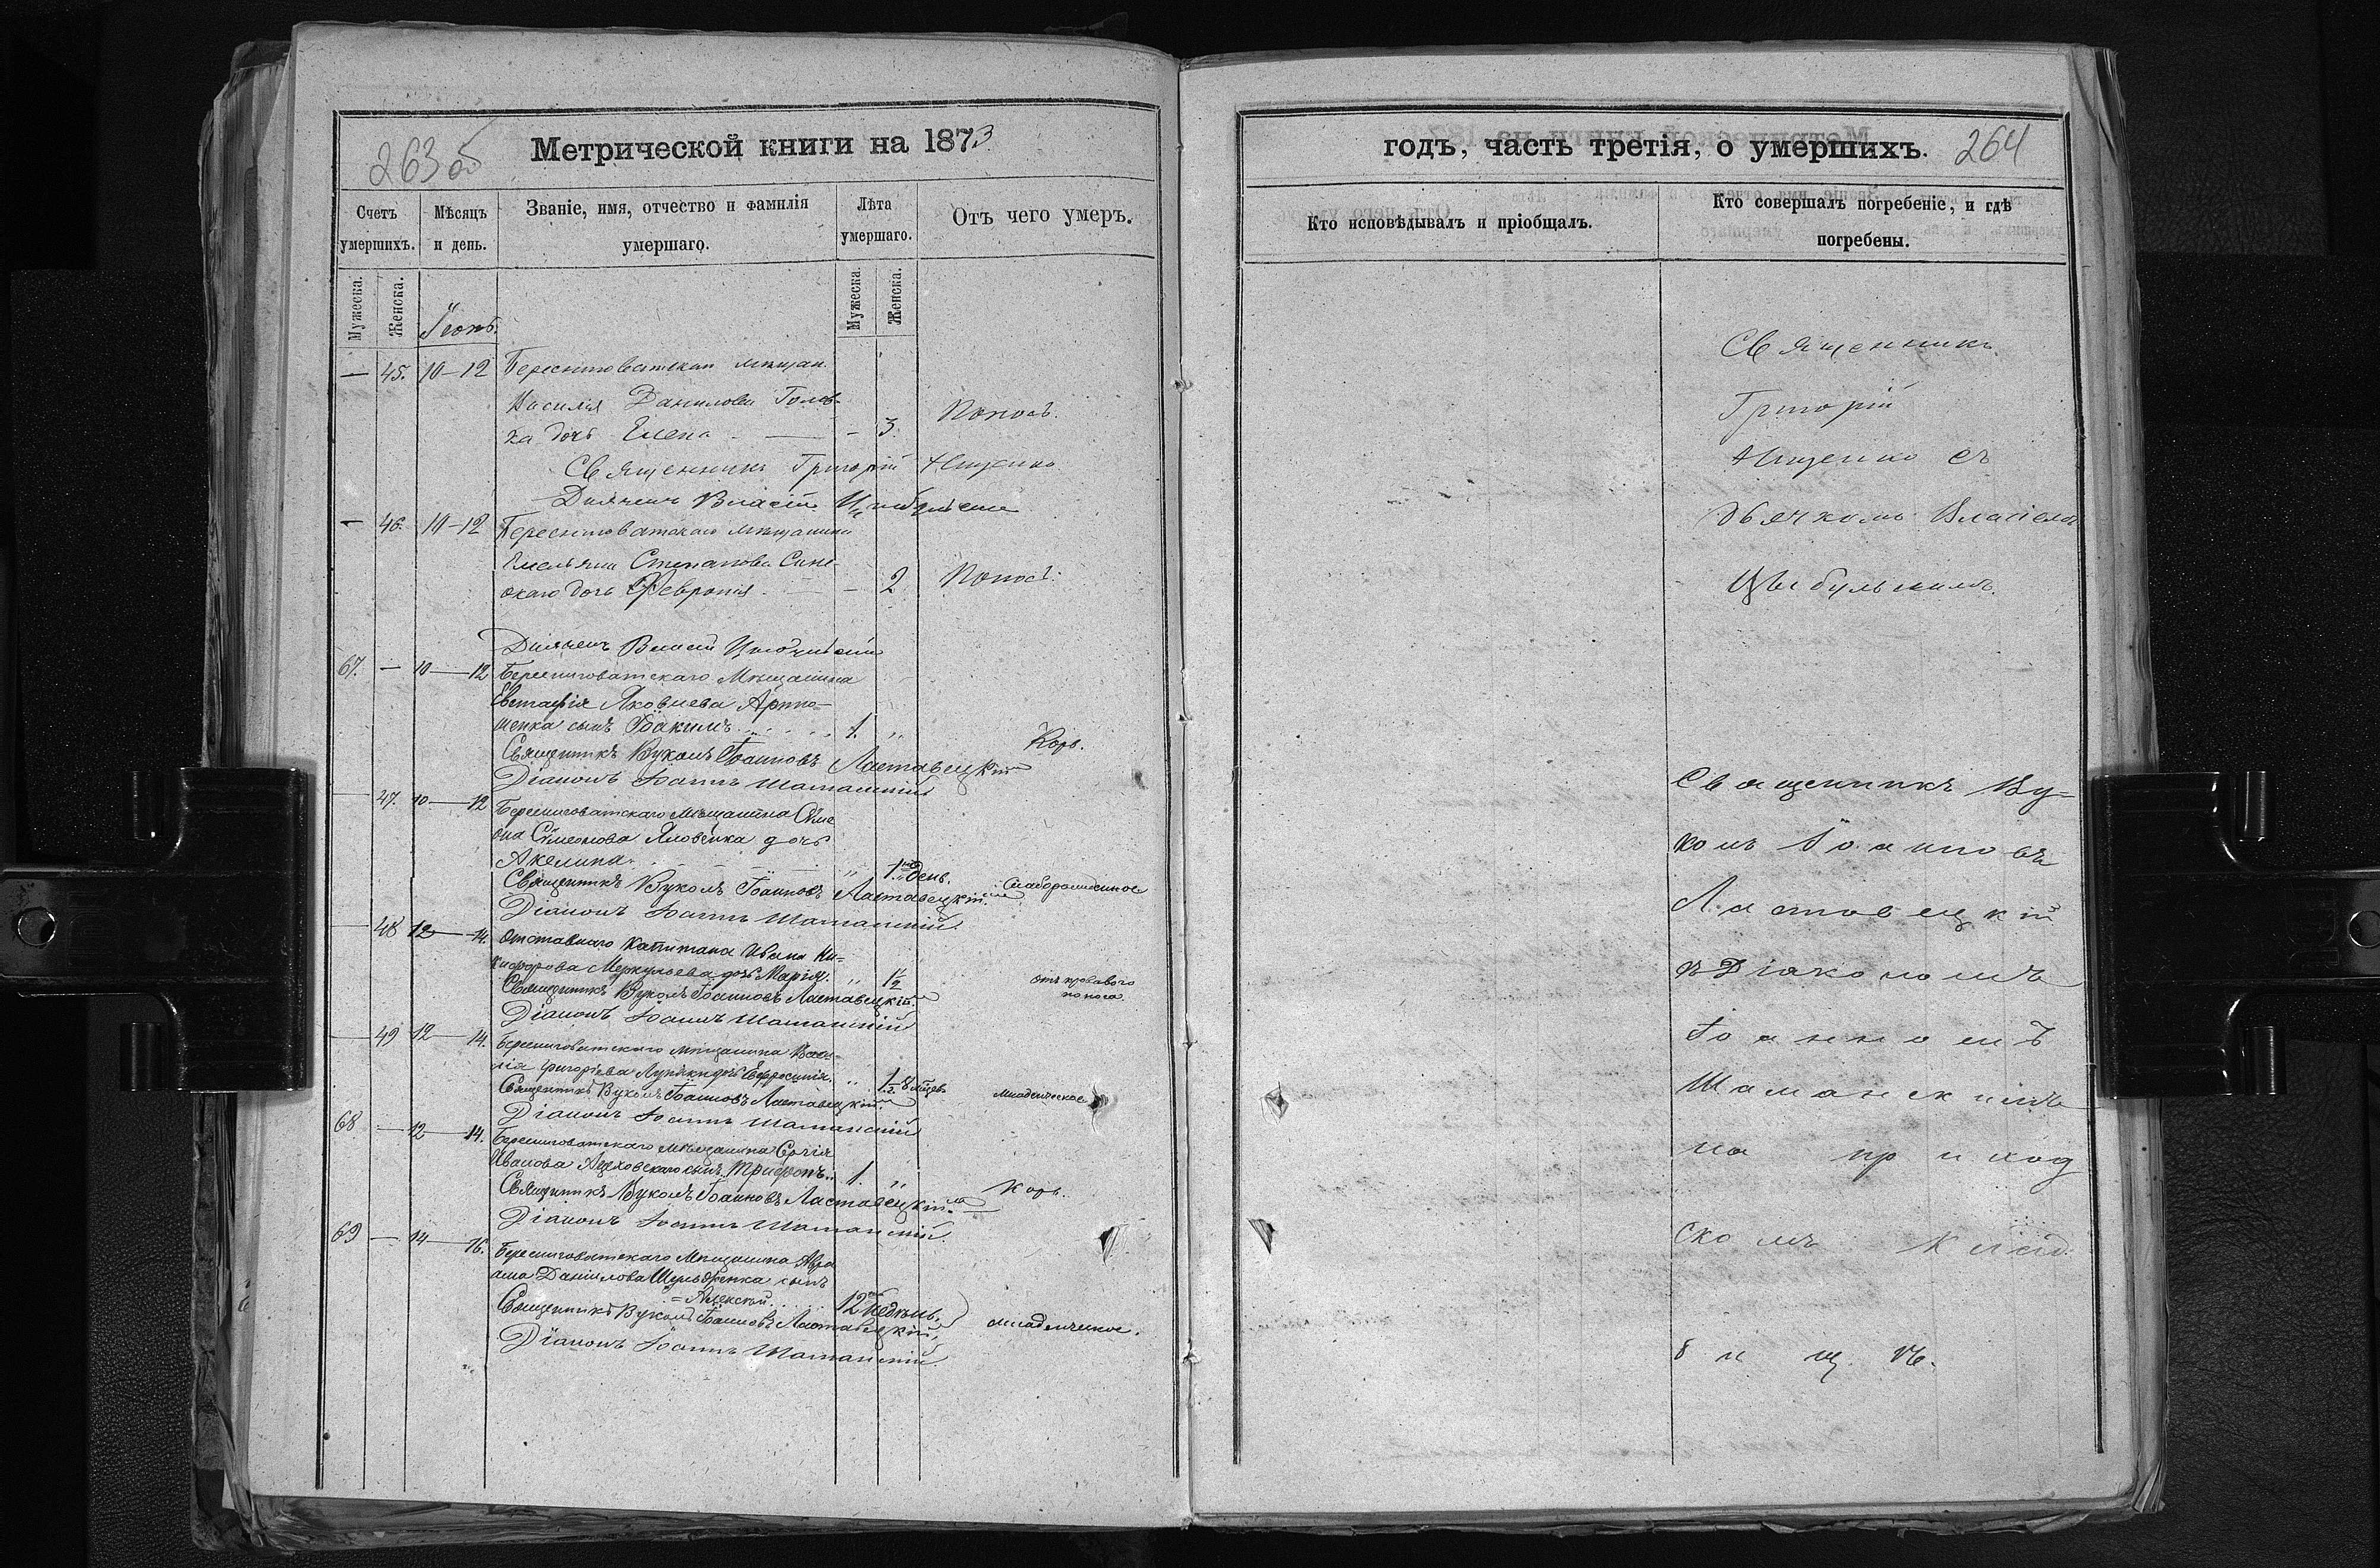 263 об
Метрической книги на 1873
Счетъ умершихъ.
Мѣсяцъ и день.
Званіе, имя, отчество и фамилія умершаго.
Лѣта умершаго.
Отъ чего умеръ.
Мужеска.
Женска.
Мужеска.
Женска.
Іюнь.
— 45. 10–12 Березниговатскаи мѣщан.
Василія Данилова Голов-
ка дочь Елена — — 3. Поносъ.
Священникъ Григорій
Дьячекъ Власій
— 46. 10–12 Березниговатскаго мѣщанина
Емельяна Степанова Сине-
окаго дочь Февронія — 2 Поносъ.
Дьячекъ Власій
67. — 10–12 Березниговатскаго Мѣщанина
Евстафія Яковлева Артю-
шенка сынъ Іоакимъ 1. „ Корь.
Священникъ Вуколъ Іоанновъ Ластавецкій
Діаконъ Іоаннъ Шаманскій
— 47. 10–12 Березниговатскаго Мѣщанина Симе
она Симеонова Яловейка дочь
Акелина „ 1. день. Слаборожденное
Священникъ Вуколъ Іоанновъ Ластавецкій.
Діаконъ Іоаннъ Шаманскій
— 48 12–14. Отставнаго Капитана Ивана Ни-
кифорова Меркульева дочь Марія. „ 1/2 отъ кроваваго поноса
Священникъ Вуколъ Іоанновъ Ластавецкій.
Діаконъ Іоаннъ Шаманскій
— 49 12–14. Березниговатскаго мѣщанина Васи-
лія Григорьева дочь Евфросинія. „ Младенческое
Священникъ Вуколъ Іоанновъ Ластавецкій.
Діаконъ Іоаннъ Шаманскій
68 — 12–14. Березниговатскаго мѣщанина Сергія
Иванова сынъ Трифонъ 1. „ Корь.
Священникъ Вуколъ Іоанновъ Ластавецкій.
Діаконъ Іоаннъ Шаманскій.
69 — 14–16. Березниговатскаго Мѣщанина Авра
ама Даніилова сынъ
= Алексѣй 12 недѣль. младенческое.
Священникъ Вуколъ Іоанновъ Ластавецкій.
Діаконъ Іоаннъ Шаманскій
годъ, часть третія, о умершихъ. 264
Кто исповѣдывалъ и пріобщалъ.
Кто совершалъ погребеніе, и гдѣ погребены.
Священникъ
Григорій
съ
дьячкомъ Власіемъ
Цыбульскимъ.
Священникъ Ву-
колъ Іоанновъ
Ластовецкій
съ Діакономъ
Іоанномъ
Шаманскимъ
на приход
скомъ клад
бищѣ.